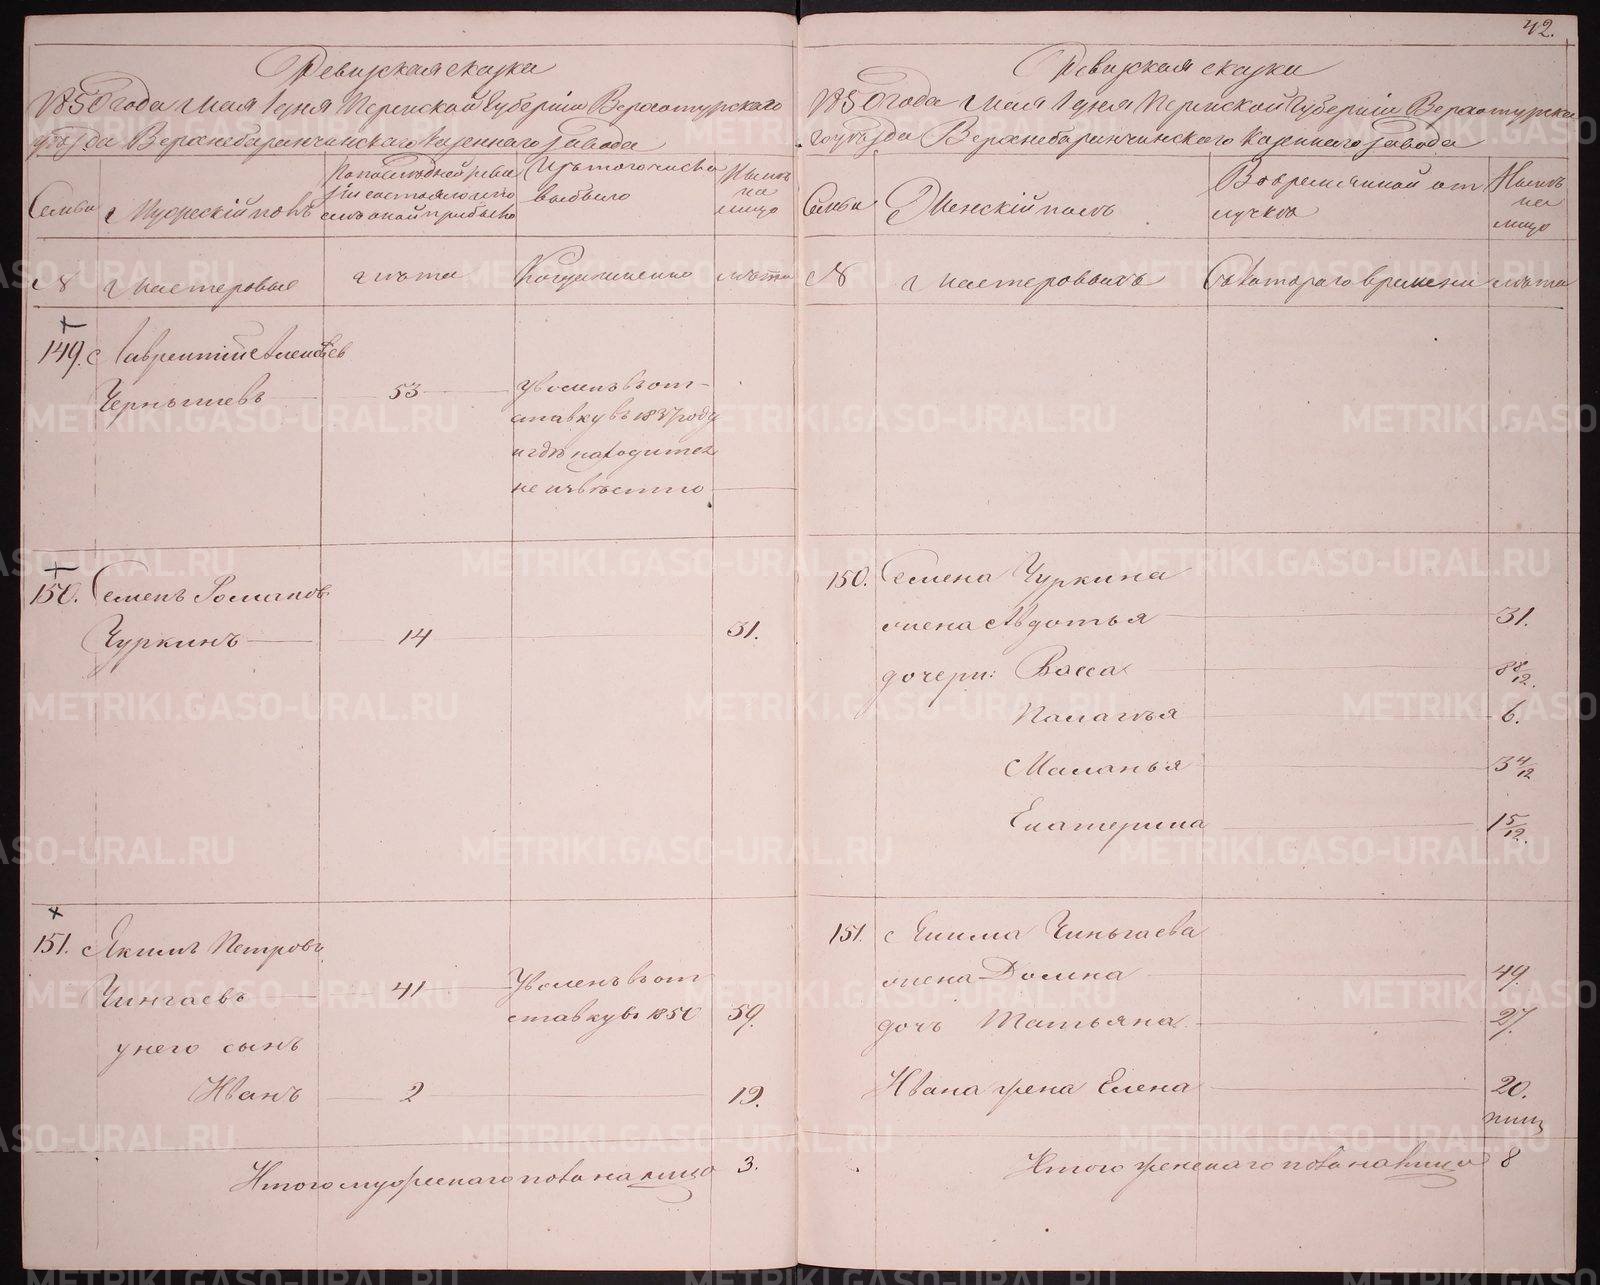 42.
Ревизская сказка
1850 года Мая 1 дня Пермской Губернии Верхотурскаго
уѣзда Верхнебаранчинскаго казеннаго завода
Семьи
Мужескій полъ
По последней реви
зіи состояло и по
слѣ оной прибыло
Изъ того числа
выбыло
Нынѣ
на
лицо
№
Мастеровые
лѣта
Когда именно
лѣта
149.
Лаврентій Алексѣев
Чернышевъ
53
Уволенъ въ от-
ставку въ 1837 году
и гдѣ находится
не извѣстно
150.
Семенъ Романовъ
Чуркинъ
14
31.
151.
Якимъ Петровъ
Чингаевъ
41
Уволенъ въ от
ставку въ 1850
59.
у него сынъ
Иванъ
2
19.
Итого мужескаго пола на лицо
3.
Ревизская сказка
1850 года Мая 1 дня Пермской Губерніи Верхотурска
го уѣзда Верхнебаранчинскаго казеннаго завода
Семьи
Женскій полъ
Во временной от
лучкѣ
Нынѣ
на
лицо
№
Мастеровыхъ
Съ котораго времени
лѣта
150.
Семена Чуркина
жена Авдотья
31.
дочери: Васса
8 8/12.
Палагѣя
6.
Маланья
3 4/12
Екатерина
1 5/12.
151.
Якима Чингаева
жена Домна
49.
дочь Татьяна
27.
Ивана жена Елена
20.
Итого женскаго пола на лицо
8
METRIKI.GASO-URAL.RU